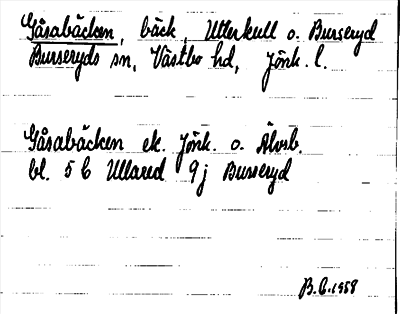 Gåsabäcken, bäck, Utterkull o. Burseryd
Burseryds sn, Västbo hd, Jönk. l.
Gåsabäcken ek. Jönk. o. Älvsb.
bl. 5 C Ullared 9 j Burseryd
B.C. 1958